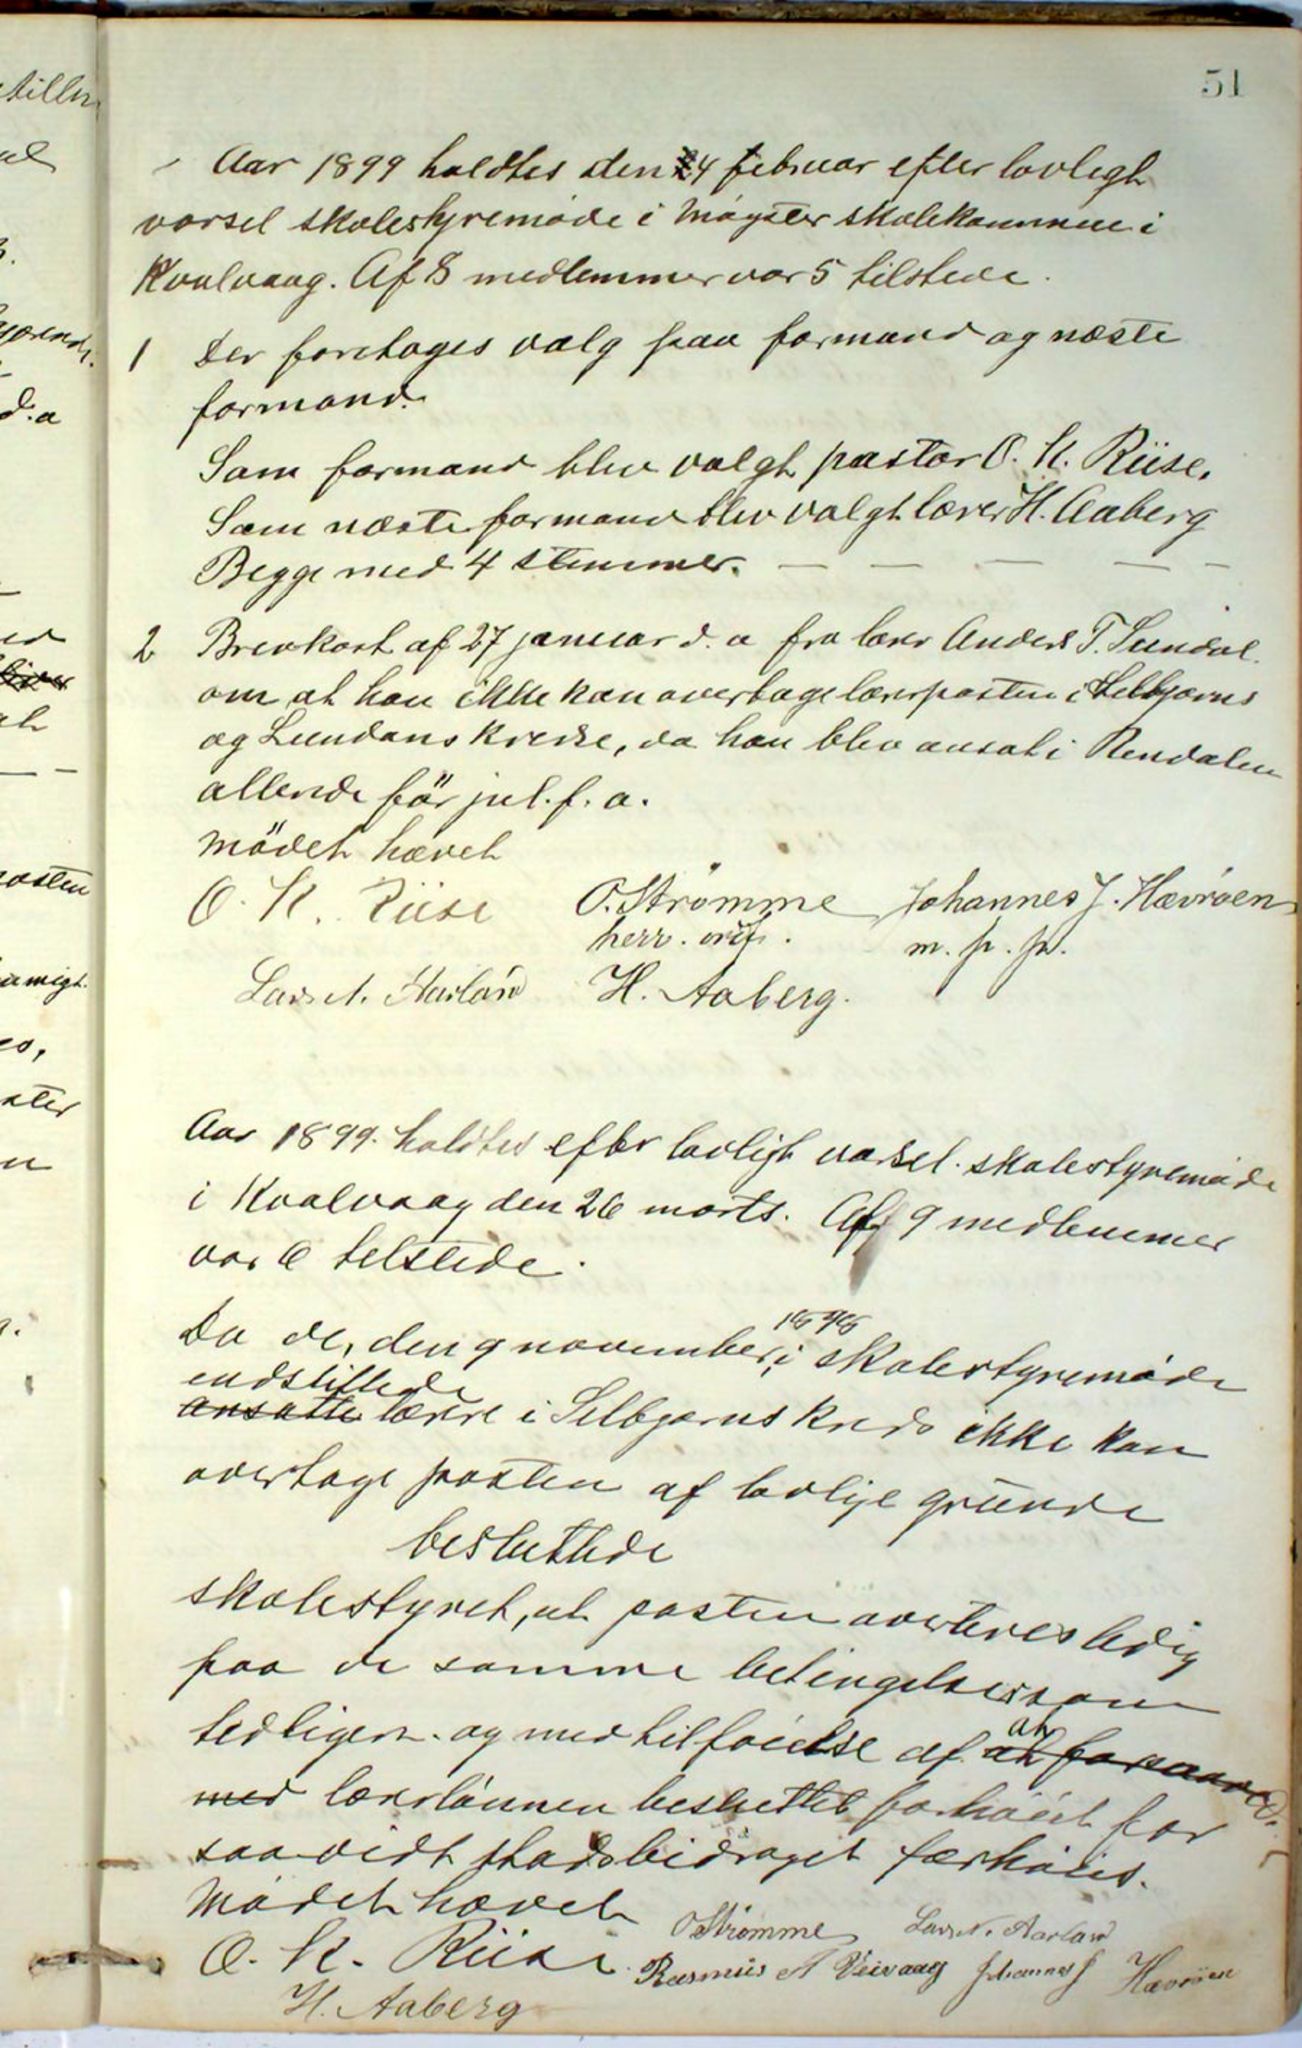 51
Aar 1899 holdtes den 4 februar efter lovligt
varsel skolestyremøde i Møgster skolekommune i
Kvalvaag. Af 8 medlemmer var 5 tilstede.
1 Der foretoges valg paa formand og næste
formand.
Som formand blev valgt pastor O. K. Riise.
Som næste formand blev valgt lærer H. Aaberg
Begge med 4 stemmer. — — — — —
2 Brevkort af 27 januar d. a fra lærer Anders T. Sundal.
om at han ikke kan overtage lærerposten i Selbjørns
og Lundans kredse, da han blev ansat i Rendalen
allerede før jul. f. a.
Mødet hævet
O. K. Riise O. Strømme Johannes J. Hævrøen
herr. m. p. p.
Lars N. Aarland H. Aaberg.
Aar 1899. holdtes efter lovligt varsel. skolestyremøde
i Kvalvaag den 26 marts. Af 9 medlemmer
var 6 telstede.
1898
Da de, den 9 november, i skolestyremøde
endstillede
ansatte lærere i Selbjørns kreds ikke kan
overtage posten af lovlige grunde
besluttede
skolestyret, at posten averteres ledig
paa de samme betingelser som
tedligere. og med tilføielse af at
med lærerlønnen besluttet forhøiet for
saavidt stadsbidraget forhøies.
Mødet hævet
O. Strømme Lars N. Aarland
O. K. Riise Rasmus A Veivaag Johannes J Hævrøen
H. Aaberg